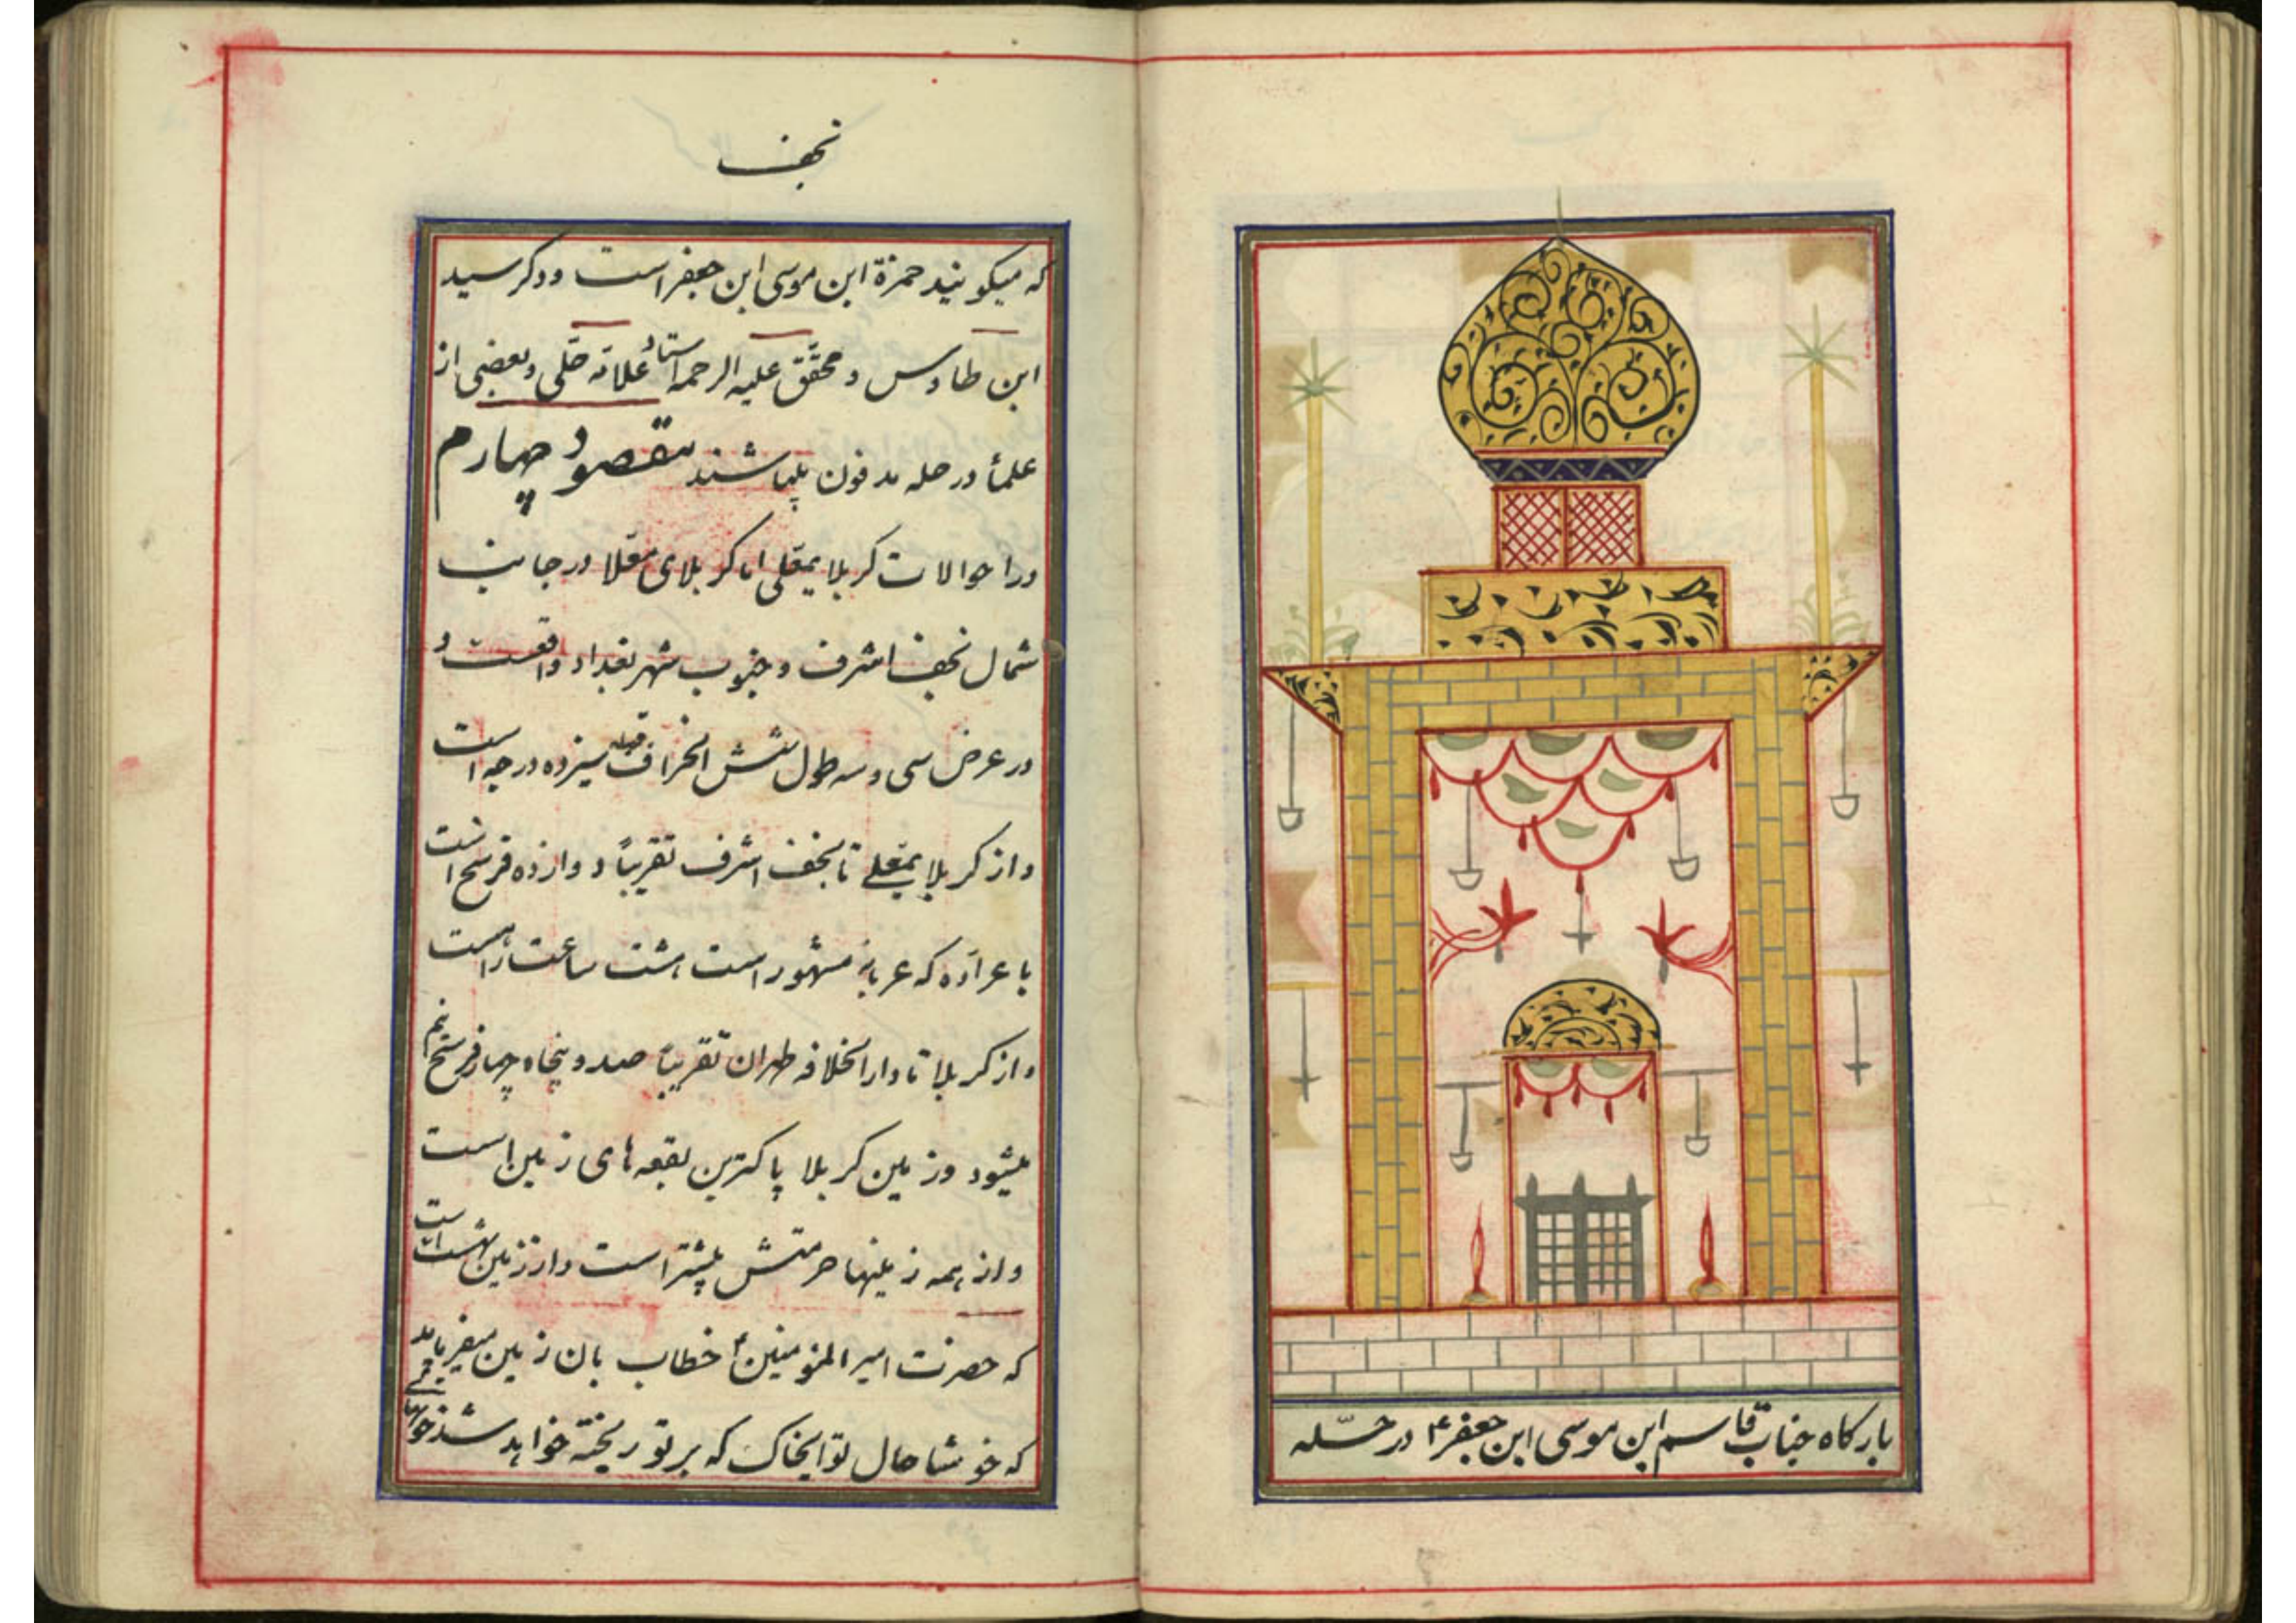 بارکاه جناب قاسم ابن موسی ابن جعفر۴ در حسّله
نجف
که میکویند حمزة ابن موسی ابن جعفر است و دکر سید
ابن طاوس و محقق علیه الرحمه استاد علامه حلّی و بعضی از
علمأ در حله مدفون میباشند مقصود چهارم
در احوالات کربلا یمعّلی اما کربلای معّلا در جانب
شمال نجف اشرف و جنوب شهر بغداد واقعست و
در عرض سی و سه طول شش انحراف قبله سیزده درجه است
و از کربلا یمعّلے تا نجف اشرف تقریباً دوازده فرسخ است
با عرّاده که عربانه مشهور است هشت ساعت راهست
و از کربلا تا دار الخلافه طهران تقریباً صد و پنجاه چهار فرسخ نیم
میشود و زمین کربلا پاکترین بقعه های زمین است
و از همه زمینها حرمتش بیشتر است و از زمین بهشت است
که حضرت امیر المؤمنین۴ خطاب بان زمین میفرماید
که خوشا حال تو ایخاک که بر تو ریخته خواهد شد